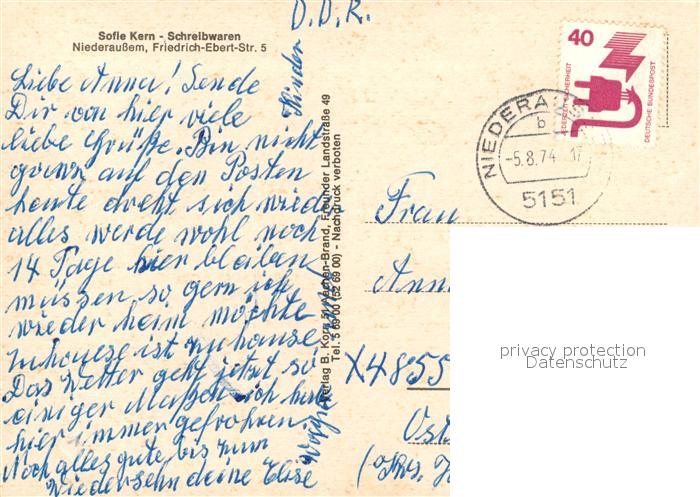 Sofie Kern - Schreibwaren
Niederaußem, Friedrich-Ebert-Str. 5
D.D.R.
Liebe Anna! Sende
Dir von hier viele
liebe Grüße. Bin nicht
auf den Posten
heute dreht sich wieder
alles werde wohl noch
14 Tage hier bleiben
müssen so gern ich
wieder heim möchte
zuhause ist zuhause
Das Wetter geht jetzt so
einiger Maßen ich habe
hier immer gefroren.
Noch alles gute bis zum
Wiedersehn deine Elise
Kinder
Verlag B. Korr, 51 Aachen-Brand, Freunder Landstraße 49
Tel. 5 69 00 (52 69 00) - Nachdruck verboten
40
JEDERZEIT SICHERHEIT
DEUTSCHE BUNDESPOST
NIEDERAU
b
-5.8.74 17
5151
Frau
Ann
X4855
Ost
(Krs.
privacy protection
Datenschutz